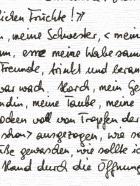 lichen Früchte! »
, meine Schwester, < meine
m, eine meine Wabe sam
Freunde, trinkt und beran
war wach. Horch, mein Ge
ndin, meine Taube, meine
ocken voll von Tropfen der
schon > ausgezogen, wie so
ße gewaschen, wie sollte ic
Hand durch die Öffnung